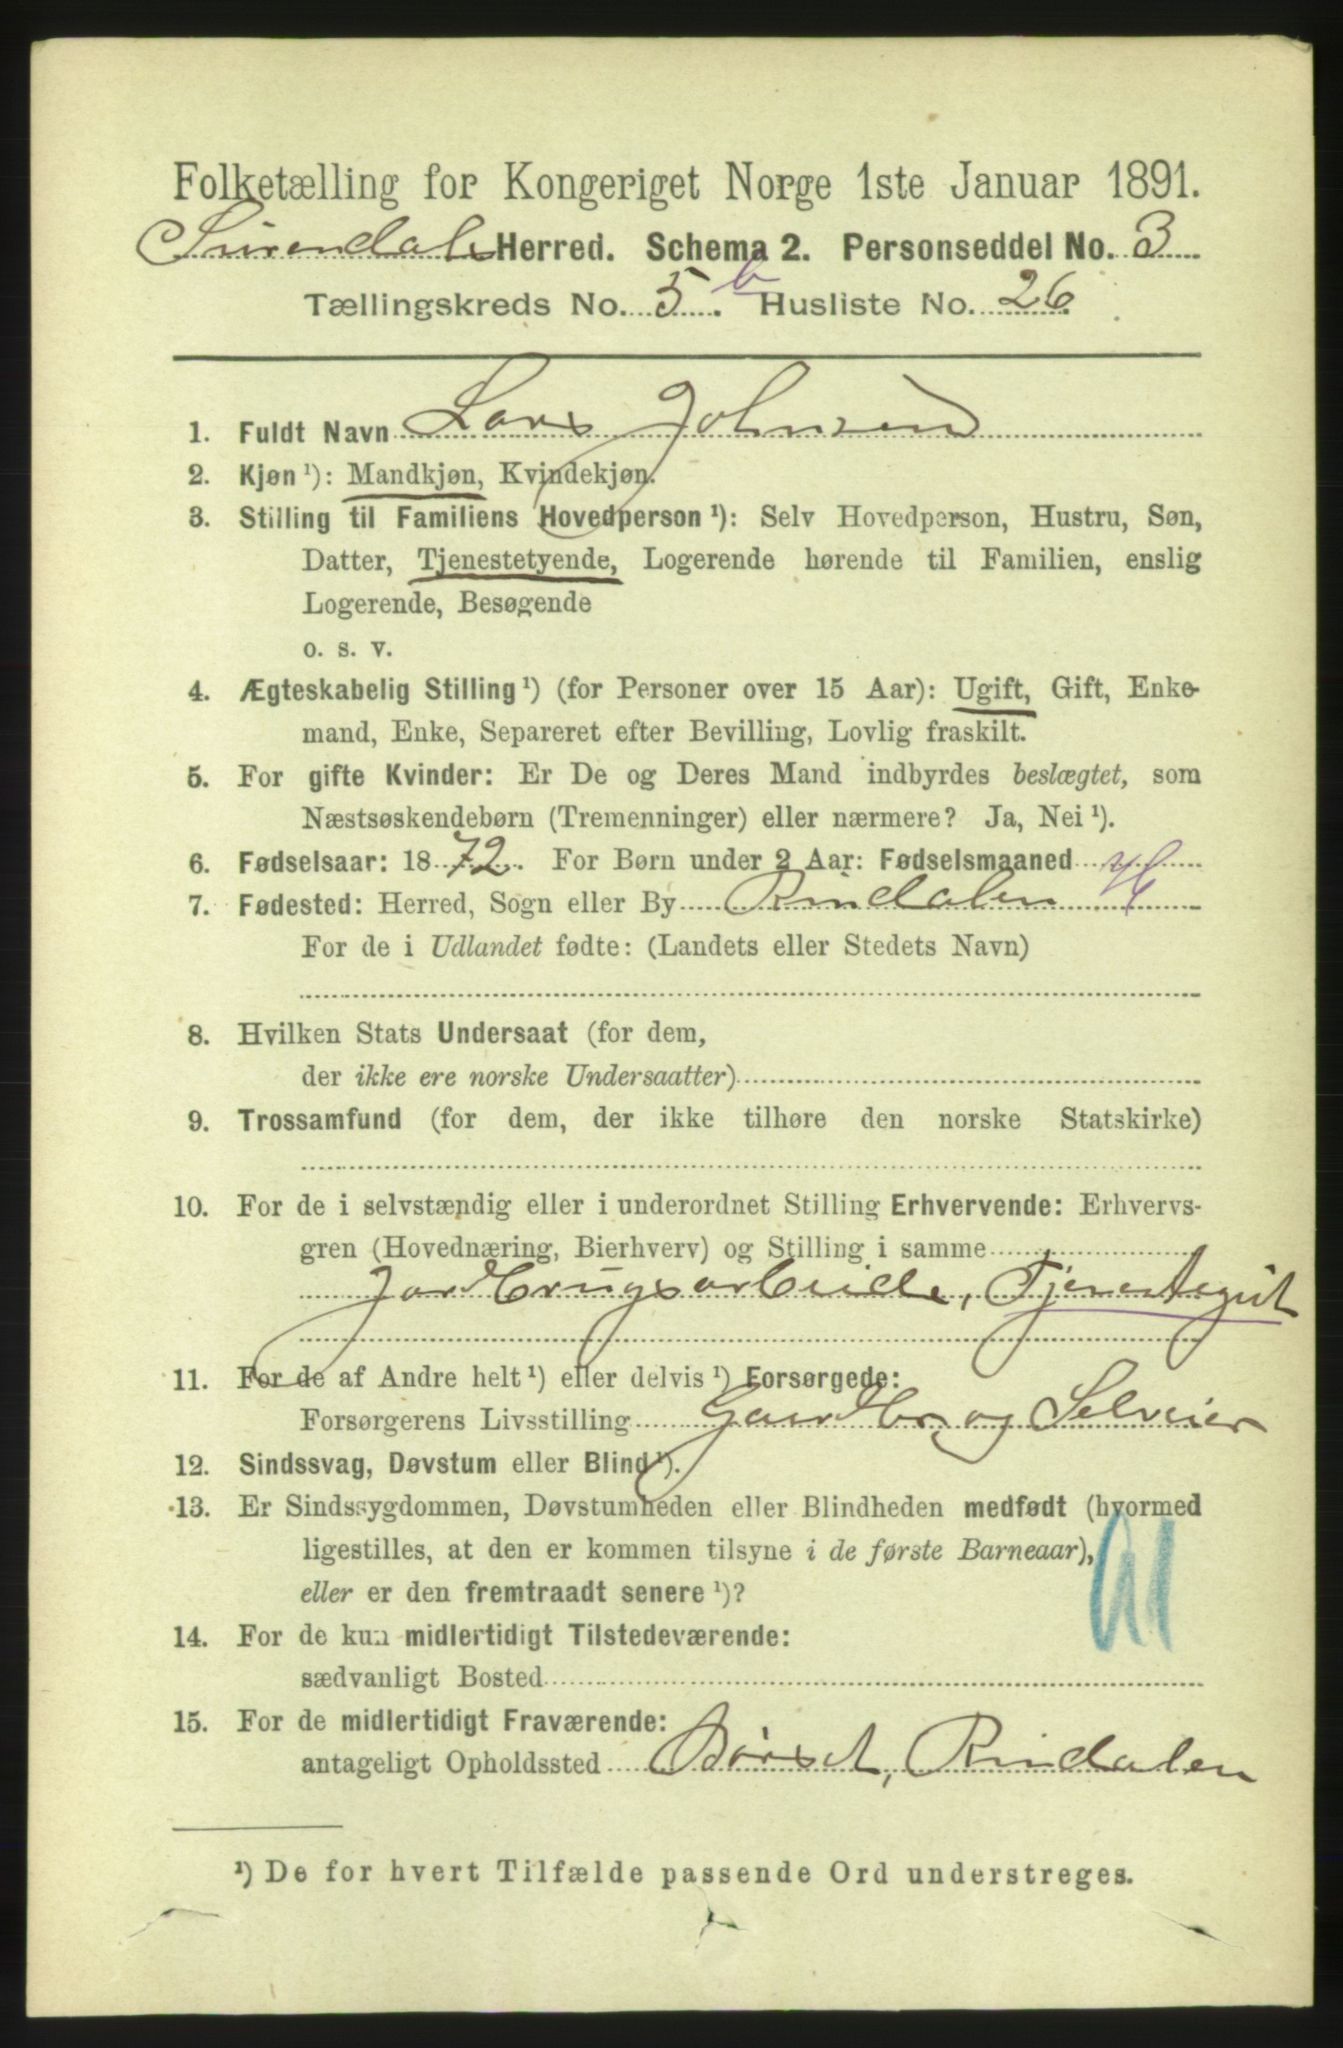 Folketælling for Kongeriget Norge 1ste Januar 1891.
Surendals Herred. Schema 2. Personseddel No. 3
Tællingskreds No. 5. b Husliste No. 26
1. Fuldt Navn Lars Johnsen
2. Kjøn ¹): Mandkjøn, Kvindekjøn.
3. Stilling til Familiens Hovedperson ¹): Selv Hovedperson, Hustru, Søn,
Datter, Tjenestetyende, Logerende hørende til Familien, enslig
Logerende, Besøgende
o. s. v.
4. Ægteskabelig Stilling ¹) (for Personer over 15 Aar): Ugift, Gift, Enke-
mand, Enke, Separeret efter Bevilling, Lovlig fraskilt.
5. For gifte Kvinder: Er De og Deres Mand indbyrdes beslægtet, som
Næstsøskendebørn (Tremenninger) eller nærmere? Ja, Nei ¹).
6. Fødselsaar: 1872. For Børn under 2 Aar: Fødselsmaaned
7. Fødested: Herred, Sogn eller By Rindalen
For de i Udlandet fødte: (Landets eller Stedets Navn)
8. Hvilken Stats Undersaat (for dem,
der ikke ere norske Undersaatter)
9. Trossamfund (for dem, der ikke tilhøre den norske Statskirke)
10. For de i selvstændig eller i underordnet Stilling Erhvervende: Erhvervs-
gren (Hovednæring, Bierhverv) og Stilling i samme
Jordbrugsarbeide, Tjenestegut
11. For de af Andre helt ¹) eller delvis ¹) Forsørgede:
Forsørgerens Livsstilling Gaardbr. og Selveier
12. Sindssvag, Døvstum eller Blind ¹).
13. Er Sindssygdommen, Døvstumheden eller Blindheden medfødt (hvormed
ligestilles, at den er kommen tilsyne i de første Barneaar),
eller er den fremtraadt senere ¹)?
14. For de kun midlertidigt Tilstedeværende:
sædvanligt Bosted
15. For de midlertidigt Fraværende:
antageligt Opholdssted Børset, Rindalen
¹) De for hvert Tilfælde passende Ord understreges.